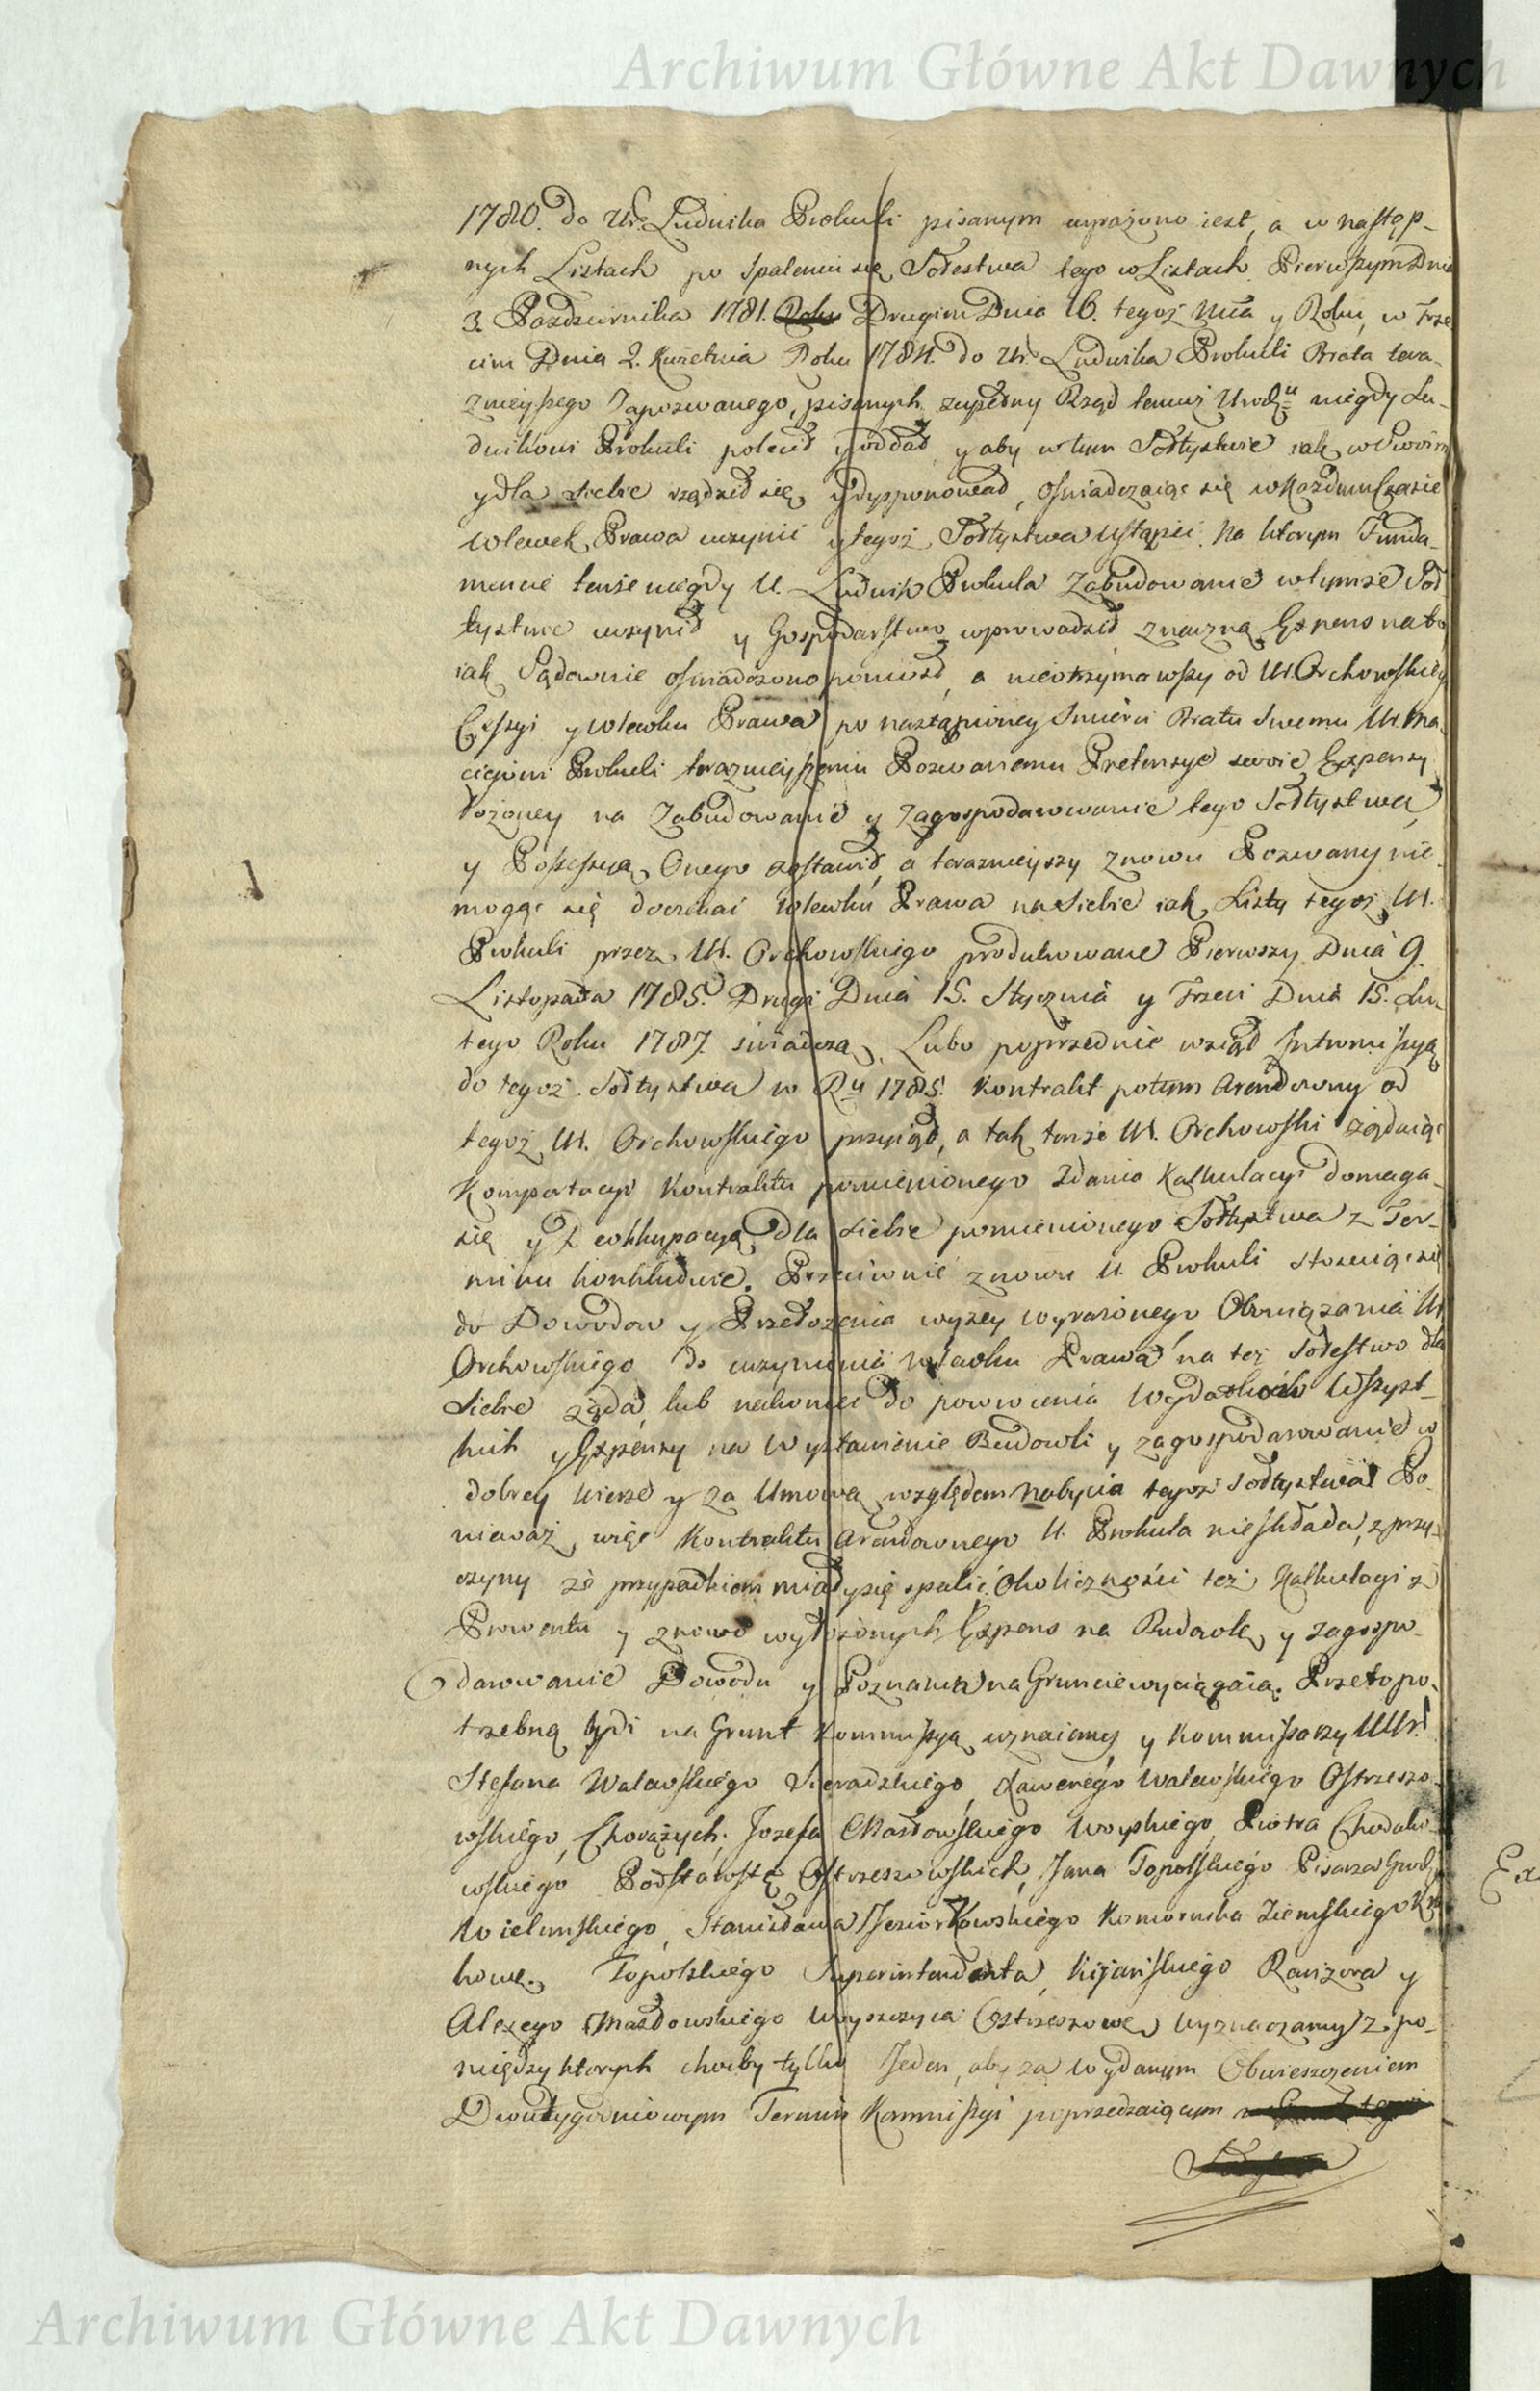 Archiwum Główne Akt Dawnych
1780. do Ur. Ludwika Prokuli pisanym wyrażono iest, a w następ-
nych Listach po spaleniu się Sołestwa tego w Listach Pierwszym Dnia
3. Pazdziernika 1781. Roku Drugim Dnia 16. tegoż Mca y Roku, w Trze
cim Dnia 2. Kwietnia Roku 1784. do Ur. Ludwika Prokuli Brata tera-
znieyszego Zapozwanego, pisanych zupełny Rząd temuż Urodz. niegdy Lu-
dwikowi Prokuli polecił y oddał, y aby w tym Sołtystwie iak w Swoim
y dla siebie rządził się, y dysponował, oświadczaiąc się w każdym Czasie
Wlewek Prawa uczynić y tegoż Sołtystwa ustąpić. Na ktorym Funda-
mencie tenże niegdy U. Ludwik Prokula Zabudowanie w tymże Soł
tystwie uczynił y Gospodarstwo wprowadził znaczną Expens na to,
iak Sądownie oświadczono poniosł, a nieotrzymawszy od Ur. Orchowskiego
Cessyi y Wlewku Prawa po nastąpioney Smierci Bratu Swemu Ur. Ma-
ciejowi Prokuli teraznieyszemu Pozwanemu Pretensye swoie Expensy
łożoney na Zabudowanie y zagospodarowanie tego Sołtystwa,
y Possessyą Onego zostawił, a teraznieyszy znowu Pozwany nie
mogąc się doczekać Wlewku Prawa na Siebie iak Listy tegoż Ur.
Prokuli przez Ur. Orchowskiego produkowane Pierwszy Dnia 9.
Listopada 1785. Drugi Dnia 15. Stycznia y Trzeci Dnia 15. Lu-
tego Roku 1787. świadczą. Lubo poprzednie wziął Intromissyą
do tegoż Sołtystwa w Ru 1785. Kontrakt potym Arendowny od
tegoż Ur. Orchowskiego przyiął, a tak tenże Ur. Orchowski żądaiąc
Komportacyi Kontraktu pomienionego Zdania Kalkulacyi domaga
się y Reokkupacyą dla siebie pomienionego Sołtystwa z Ter-
minu konkluduie. Przeciwnie znowu U. Prokuli stosuiąc się
do Dowodow y Przełożenia wyżey wyrażonego Obowiązania Ur
Orchowskiego do uczynienia Wlewku Prawa na też Sołestwo dla
siebie żąda, lub nakoniec do powrocenia Wydatkow Wszyst-
kich y Expensy na Wystawienie Budowli y zagospodarowanie w
dobrey wierze y za Umową względem nabycia tegoż Sołtystwa Po
nieważ więc Kontraktu Arendownego U. Prokula nieskłada, z przy-
czyny że przypadkiem miał się spalić. Okoliczności też Kalkulacyi z
Prowentu y znowu wyłożonych Expens na Budowle, y zagospo-
darowanie Dowodu y Poznania na Gruncie wyciągaią. Przeto po-
trzebną bydź na Grunt Kommissyą uznaiemy y Kommissarzy UUr.
Stefana Walewskiego Sieradzkiego, Xawerego Walewskiego Ostrzeszo-
wskiego, Chorążych, Jozefa Masłowskiego Woyskiego, Piotra Chodako-
wskiego Podstarostę Ostrzeszowskich, Jana Topolskiego Pisarza Grodz
Wielunskiego, Stanisława Jeziorkowskiego Komornika Ziemskiego
Topolskiego Superintendenta, Kijańskiego Rewizora y
Alexego Masłowskiego Woyszczyca Ostrzeszowe, wyznaczamy z po-
między ktorych choćby tylko Jeden, aby za wydanym Obwieszczeniem
Dwutygodniowym Termin Kommissyi poprzedzaiącym
Archiwum Główne Akt Dawnych